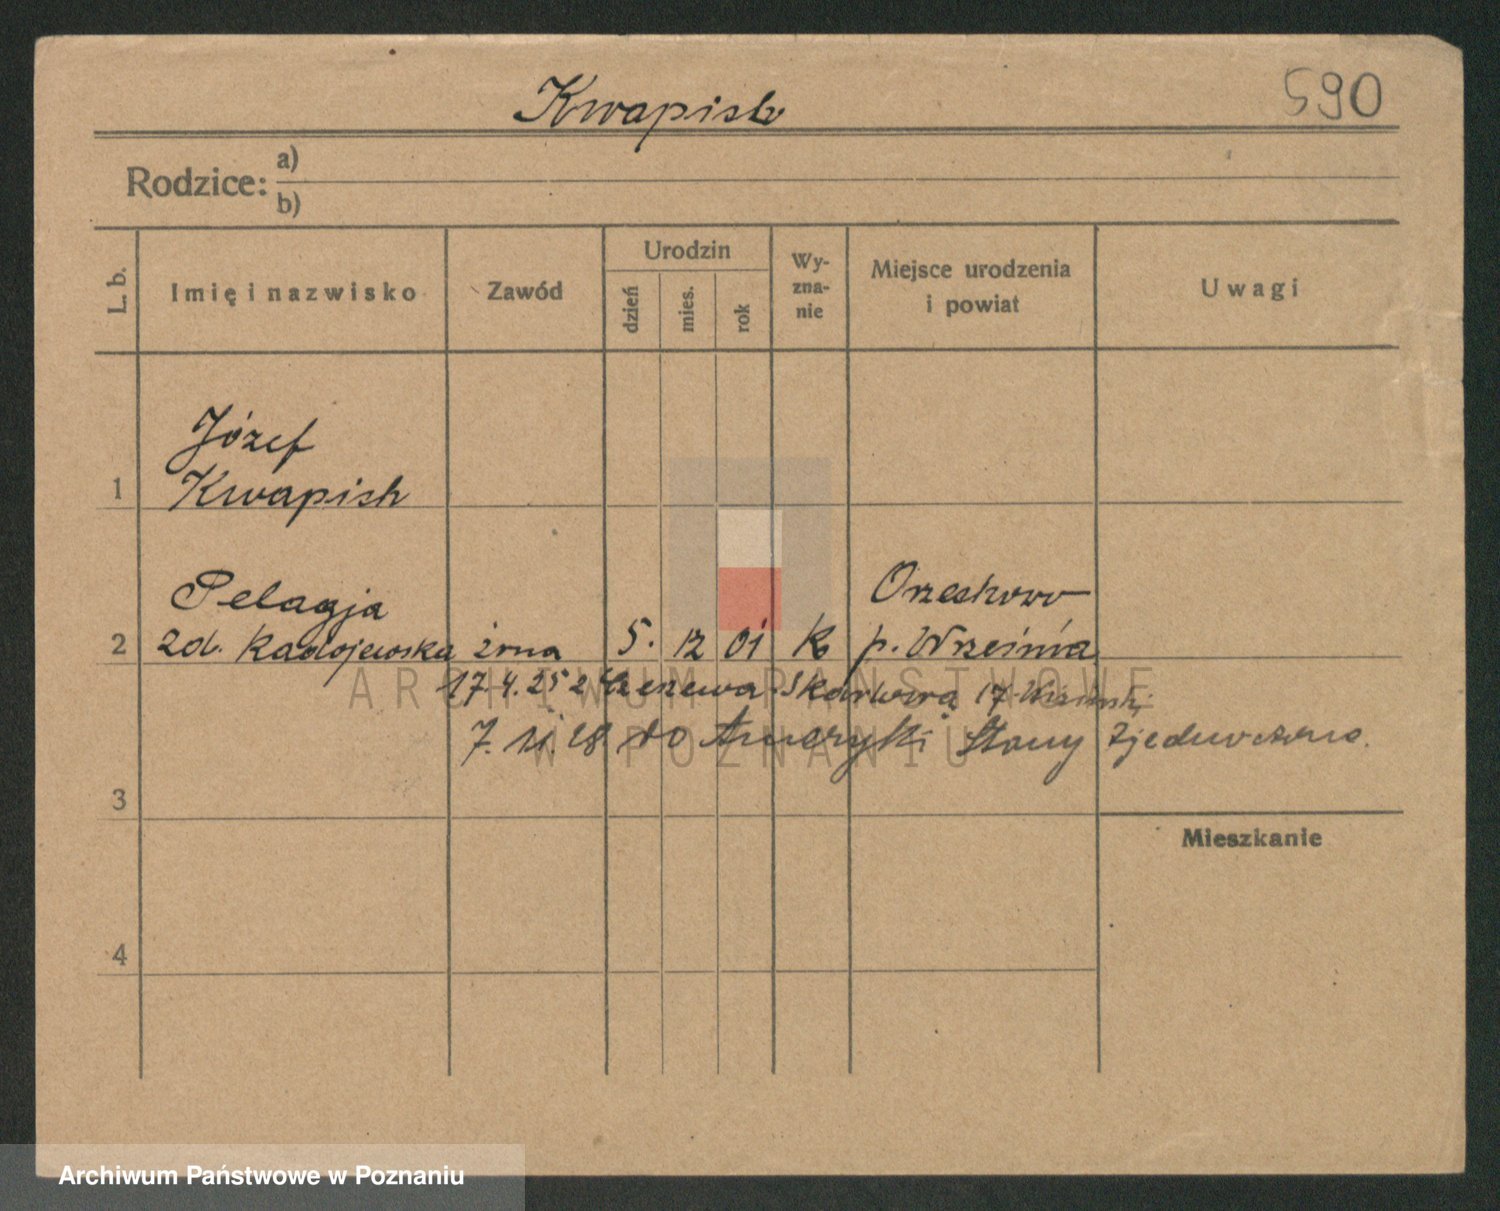 Kwapisz
590
Rodzice: a)
b)
L. b.
Imię i nazwisko
Zawód
Urodzin
dzień
mies.
rok
Wy-
zna-
nie
Miejsce urodzenia
i powiat
Uwagi
Józef
1 Kwapisz
Pelagja
Orzeskowo
2 zd. Kadojewska żona 5. 12 01 k p. Września
17.4.25 z
Skarbowa 17
7. 11. 28. do Ameryki Stany Zjednoczone.
3
Mieszkanie
4
ARCHIWUM PAŃSTWOWE
W POZNANIU
Archiwum Państwowe w Poznaniu